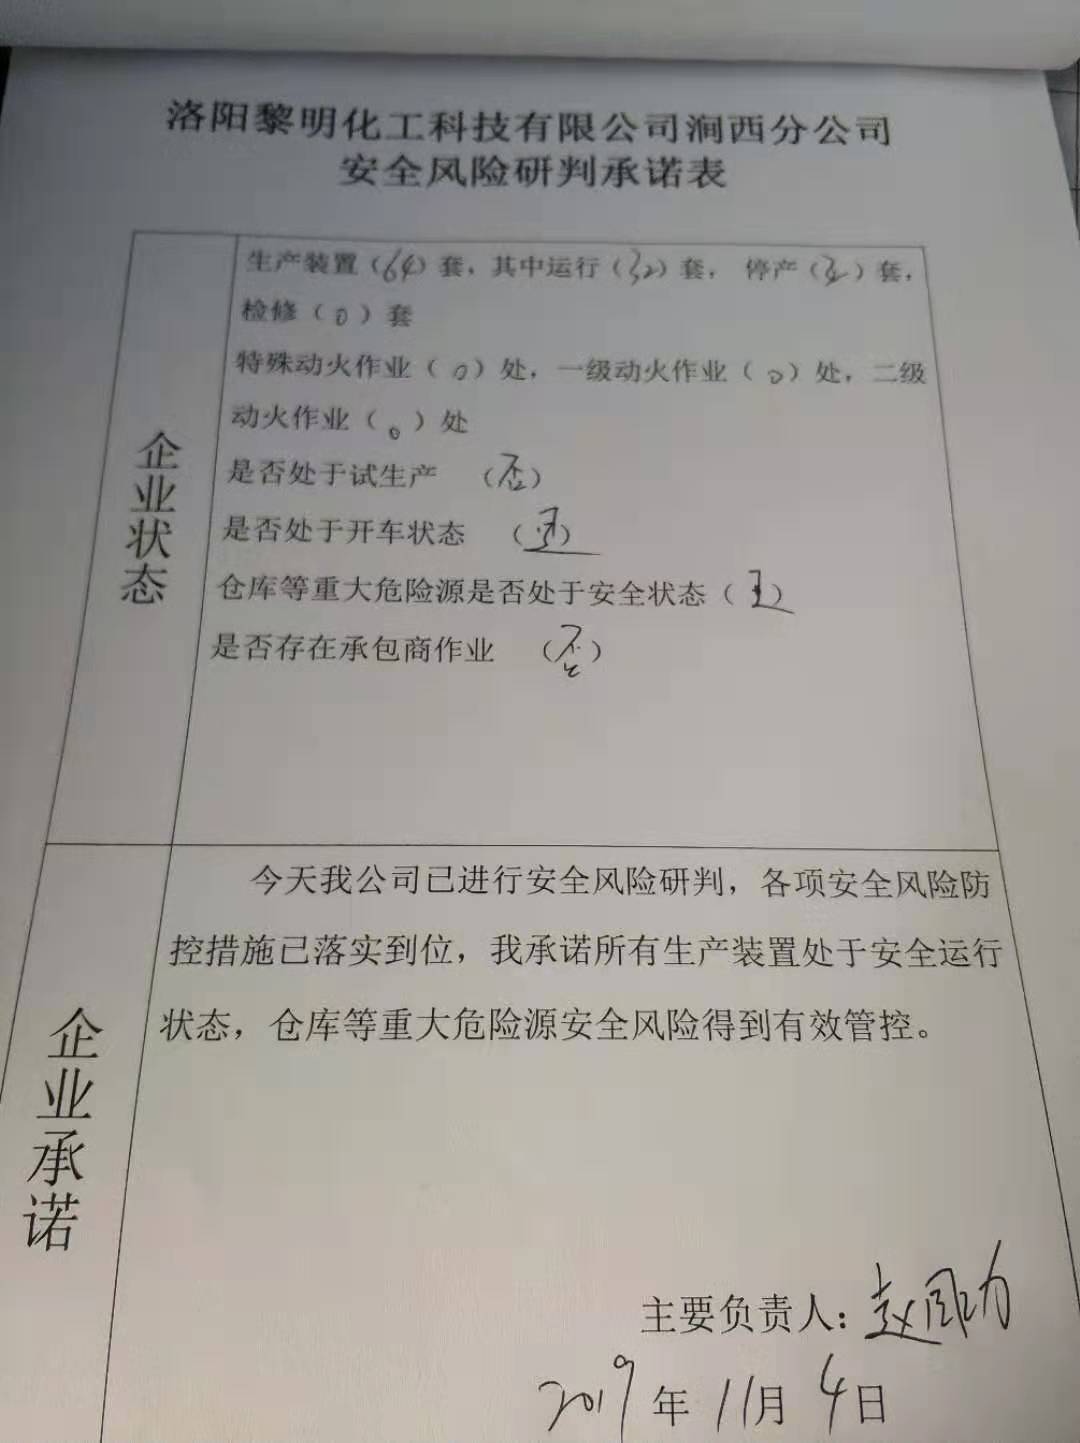 洛阳黎明化工科技有限公司涧西分公司
安全风险研判承诺表
企业状态
生产装置（64）套，其中运行（32）套， 停产（32）套，
检修（0）套
特殊动火作业（0）处，一级动火作业（0）处，二级
动火作业（0）处
是否处于试生产 （否）
是否处于开车状态 （是）
仓库等重大危险源是否处于安全状态（是）
是否存在承包商作业 （否）
企业承诺
今天我公司已进行安全风险研判，各项安全风险防
控措施已落实到位，我承诺所有生产装置处于安全运行
状态，仓库等重大危险源安全风险得到有效管控。
主要负责人：赵
2019年11月4日